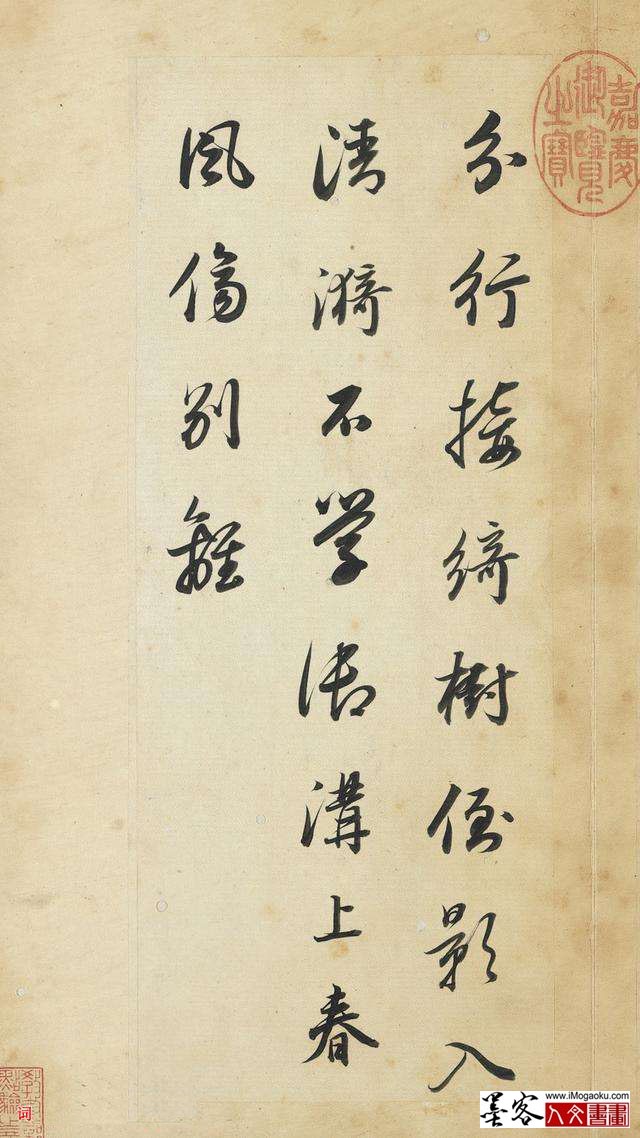 分行接綺樹倒影入
清漪不學御溝上春
風傷別離
嘉慶
御覽
之寶
www.iMogaoku.com
墨客人文書畫
词